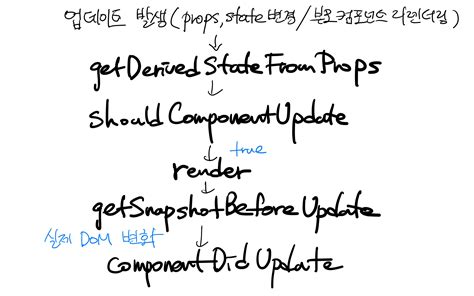 업데이트 발생 (props, state 변경 / 부모 컴포넌트 리렌더링)
getDerivedStateFromProps
shouldComponentUpdate
true
render
getSnapshotBeforeUpdate
실제 DOM 변화
componentDidUpdate